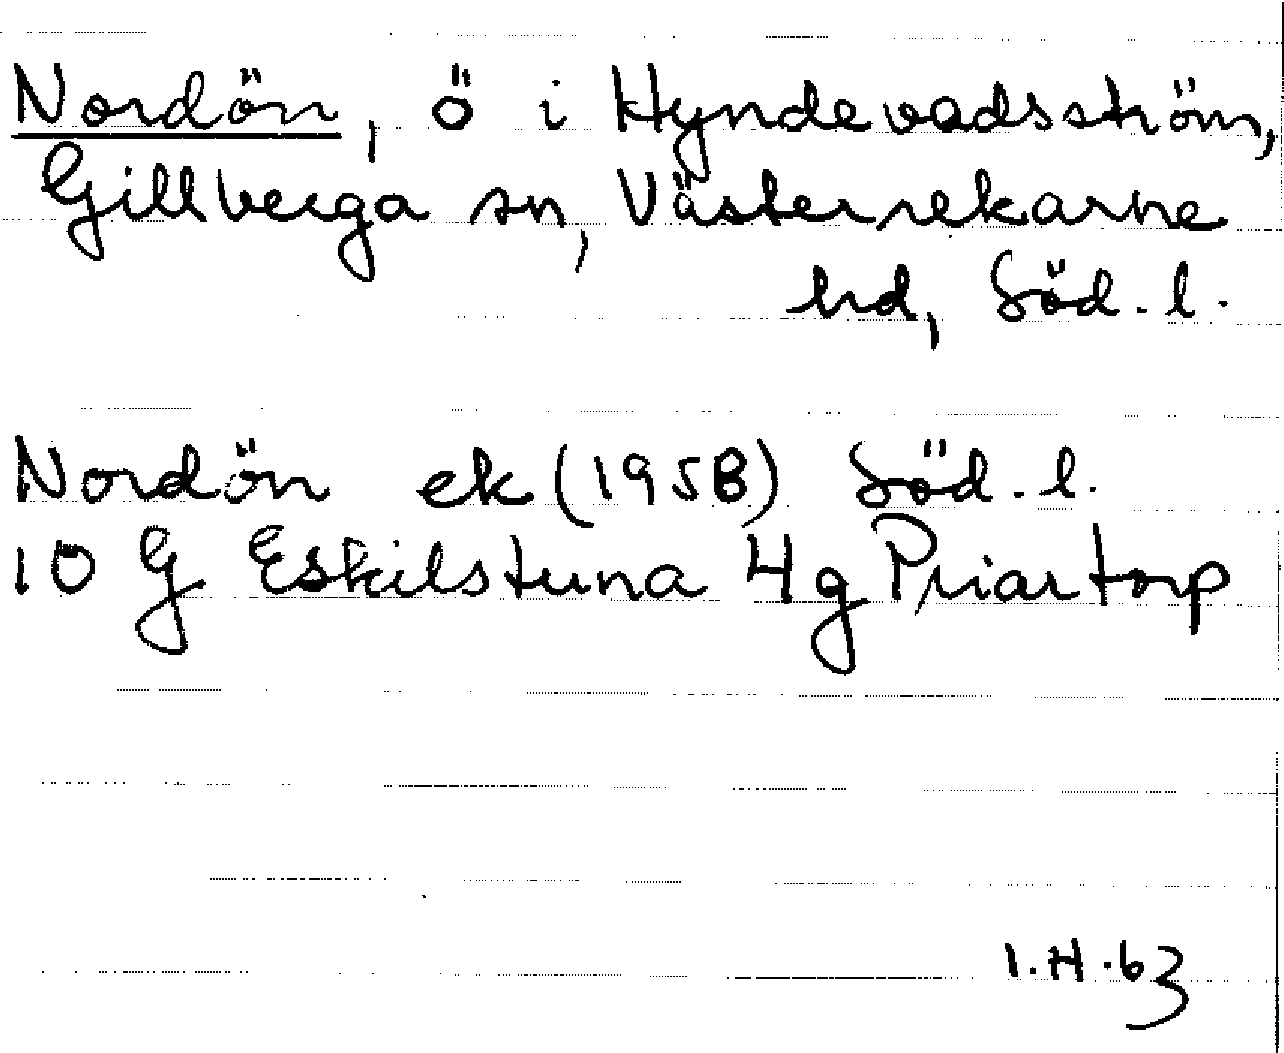 Nordön, ö i Hyndevadsström,
Gillberga sn, Västerrekarne
hd, Söd. l.
Nordön ek (1958) Söd. l.
10 G Eskilstuna 4g Priartorp
I.H.63